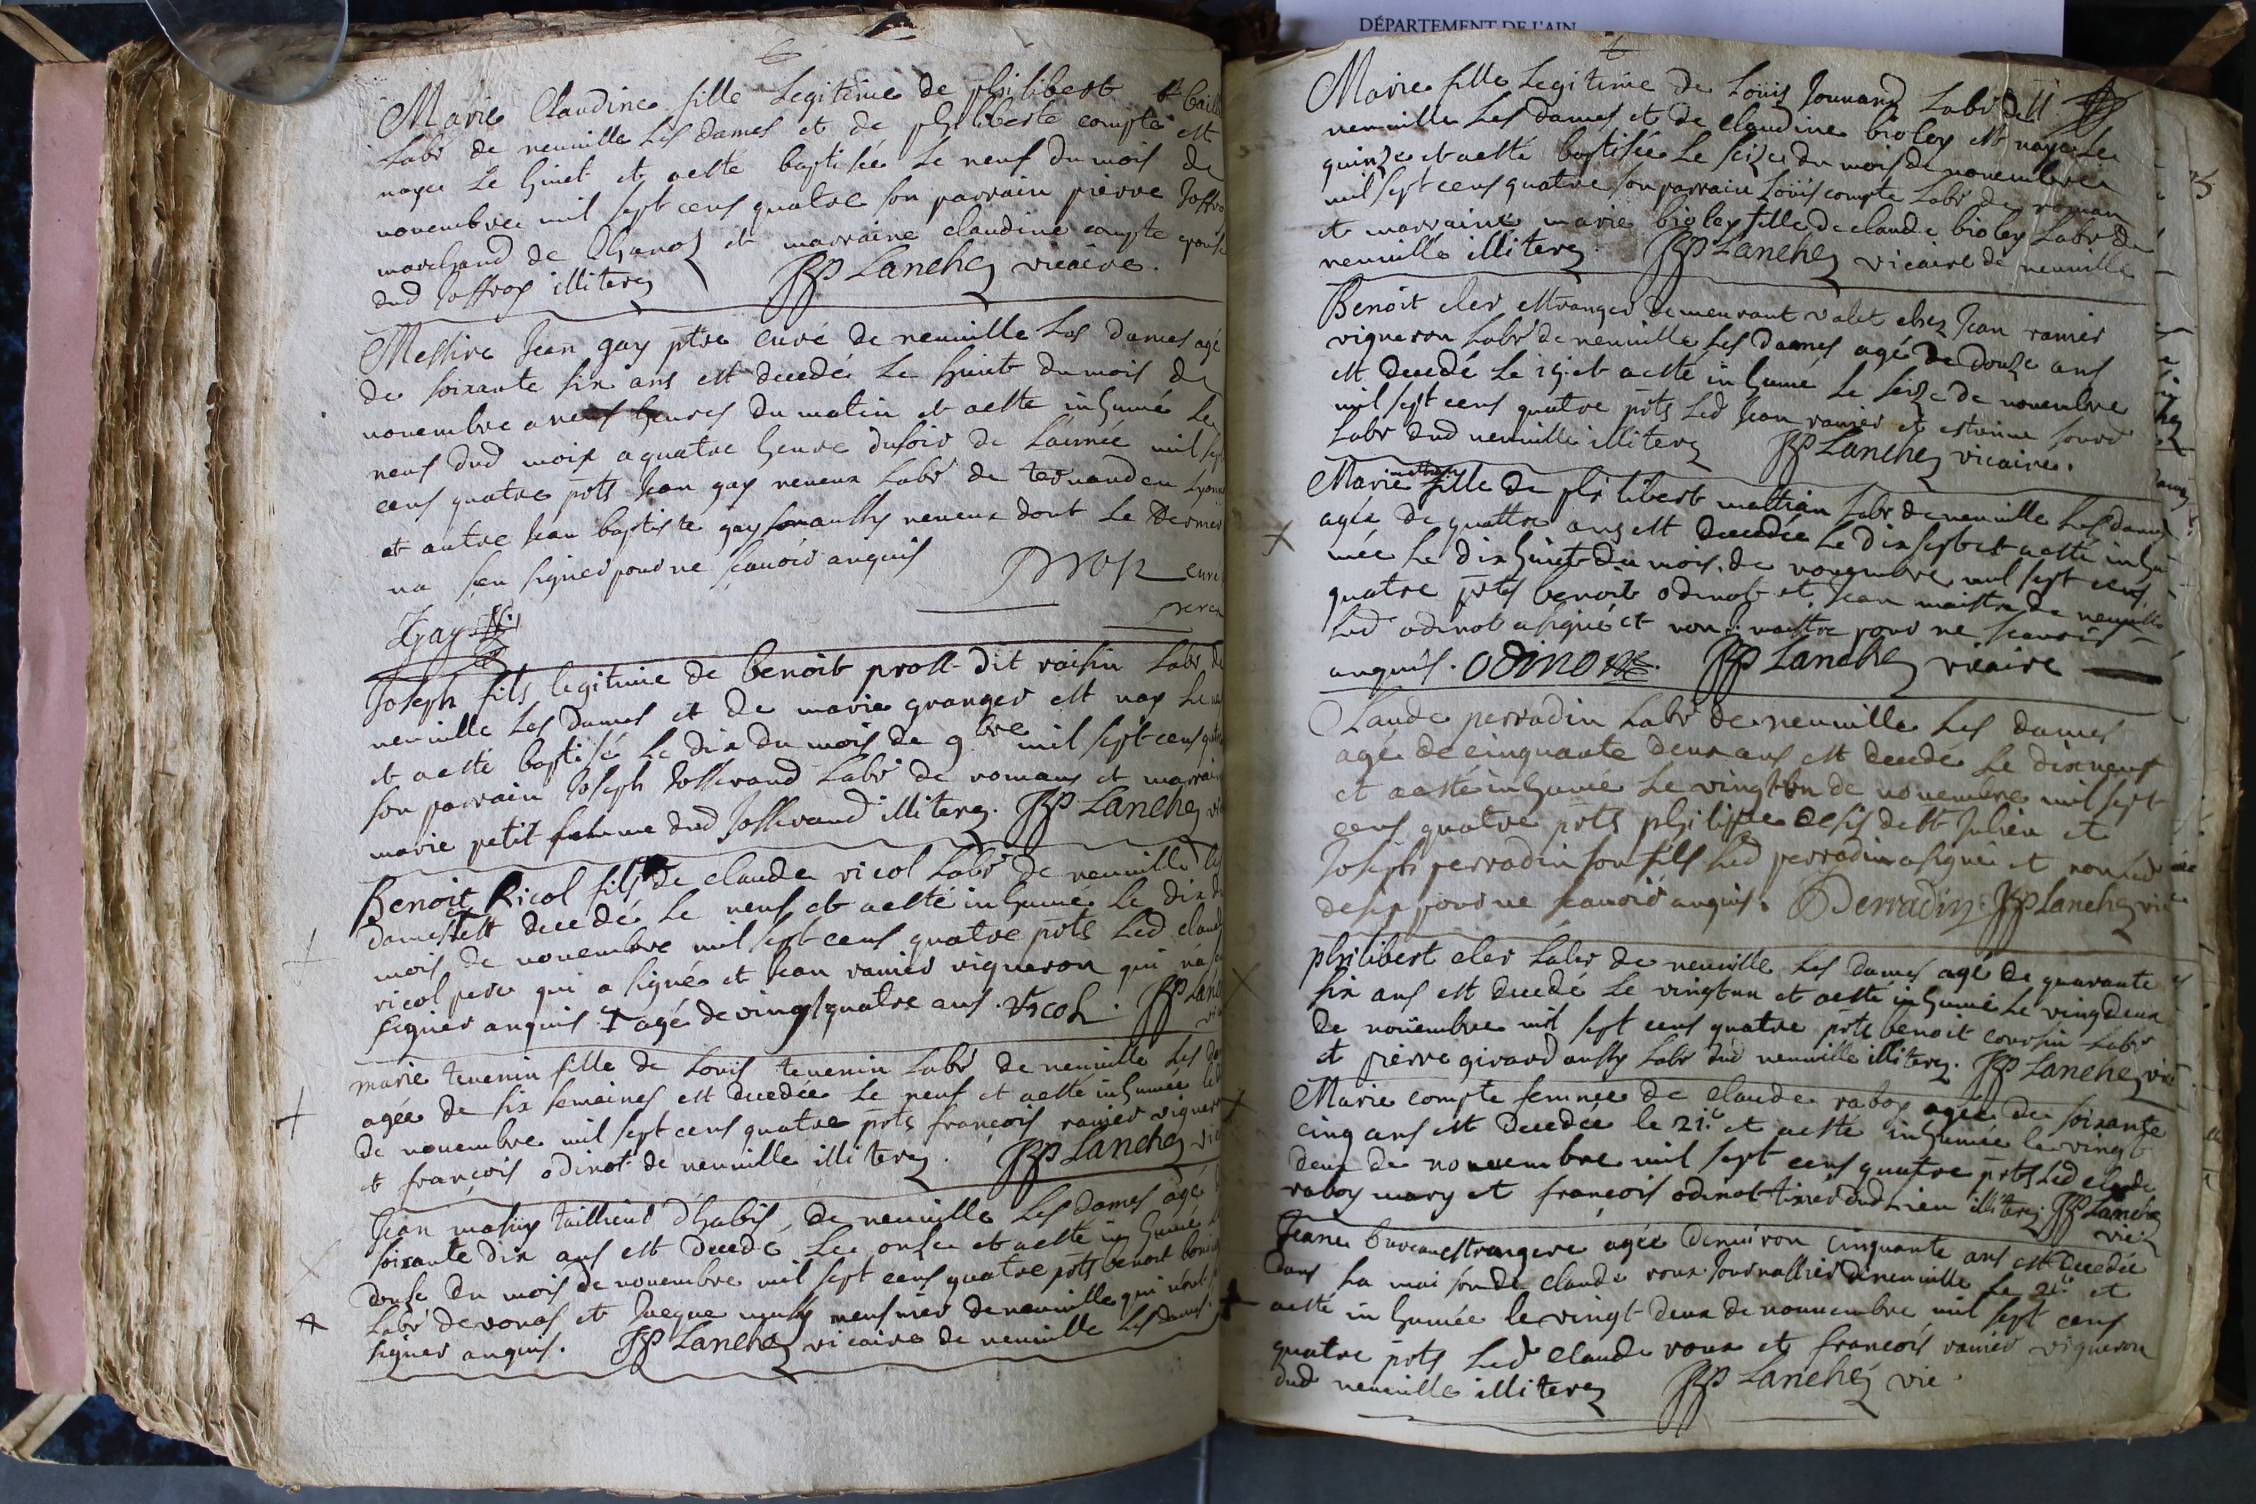 DÉPARTEMENT DE L'AIN
Marie Claudine fille Legitime de philibert
Labr de neuville Les dames et de philiberte compte est
naye Le huict et aesté baptisée Le neuf du mois de
novembre mil sept cens quatre son parrain pierre Joffr
marchand de et marraine claudine compte epouse
dud Joffray illiterez JP Lanchez vicaire.
Messire Jean gay ptre curé de neuville Les dames agé
de soixante six ans est decedé Le huict du mois de
novembre a neuf heures du matin et aesté inhumé Le
neuf dud mois a quatre heure du soir de L'année mil sept
cens quatre pnts Jean gay neveux Labr de ternand en Lyonn
et autre Jean baptiste gay son aussy neveux dont Le dernier
na sceu signer pour ne scavoir anquis curé
Jgay
Joseph fils legitime de benoit prost dit raisin Labr de
neuville Les dames et de marie granger est nay Le
et aesté baptisé Le dix du mois de 9bre mil sept cens quatre
son parrain Joseph Josserand Labr de romans et marrain
marie petit femme dud Josserand illiterez. JP Lanchez vi
Benoit Ricol fils de claude ricol Labr de neuville Les
dames + est decedé Le neuf et aesté inhumé Le dix du
mois de novembre mil sept cens quatre pnts Led claude
ricol pere qui a signé et Jean ranier vigneron qui na
signer anquis + agé de vingt quatre ans. Ricol. JP Lanc
marie tevenin fille de Louis tevenin Labr de neuville Les
agée de six semaines est decedée Le neuf et aesté inhumée le
de novembre mil sept cens quatre pnts francois ranier vigneron
et francois odinot de neuville illiterez. JP Lanchez vic
Jean taillieur d'habis, de neuville Les dames agé
soixante dix ans est decedé Le onze et aesté inhumé
douze du mois de novembre mil sept cens quatre pnts benoit
Labr de et Jacque meusnier de neuville qui nont
signer anquis. JP Lanchez vicaire de neuville Les dames.
Marie fille Legitime de Louis Jouvand Labr de
neuville Les dames et de claudine bioley est naye Le
quinze et aesté baptisée Le seize du mois de novembre
mil sept cens quatre son parrain Louis compte Labr de roman
et marraine marie bioley fille de claude bioley Labr de
neuville illiterez. JP Lanchez vicaire de neuville
Benoit cler estranger demeurant valet chez Jean ranier
vigneron Labr de neuville Les dames agé de douze ans
est decedé Le 15 et aesté inhumé Le seize de novembre
mil sept cens quatre pnts Led Jean ranier et estienne
Labr dud neuville illiterez JP Lanchez vicaire.
Marie mattian fille de philibert mattian Labr de neuville Les dames
agée de quattre ans est decedée Le dix sept et aesté inhu
mée Le dix huict du mois de novembre mil sept cens
quatre pnts benoit odinot et Jean maistre de neuville
Led odinot a signé et non maistre pour ne scavoir
anquis. odinot. JP Lanchez vicaire
Claude perradin Labr de neuville Les dames
agé de cinquante deux ans est decedé Le dix neuf
et aesté inhumé Le vingt un de novembre mil sept
cens quatre pnts philippe de st Julien et
Joseph perradin son fils Led perradin a signé et non Led
pour ne scavoir anquis. Perradin JP Lanchez vic
philibert cler Labr de neuville Les dames agé de quarante
six ans est decedé Le vingt un et aesté inhumé Le vingt deux
de novembre mil sept cens quatre pnts benoit Labr
et pierre girard aussy Labr dud neuville illiterez. JP Lanchez vic
Marie compte femme de claude raboy agée de soixante
cinq ans est decedée le 21e et aesté inhumée le vingt
deux de novembre mil sept cens quatre pnts Led claude
raboy mary et francois odinot dud Lieu illiterez JP Lanchez
vic
Jeane estrangere agée denviron cinquante ans est decedée
dans La maison de claude roux Journallier de neuville Le 21e et
aesté inhumée le vingt deux de novembre mil sept cens
quatre pnts Led Claude roux et francois ranier vigneron
dud neuville illiterez JP Lanchez vic.